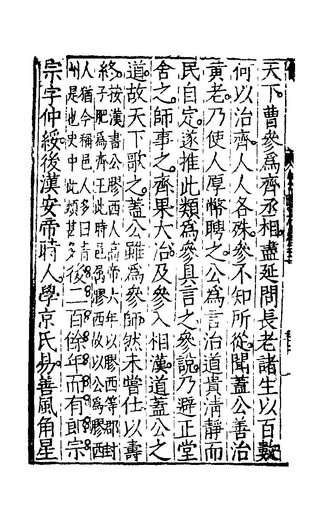 天下曹參爲齊丞相盡延問長老諸生以百數
何以治齊人人各殊參不知所從聞蓋公善治
黃老乃使人厚幣聘之公爲言治道貴清靜而
民自定遂推此類爲參具言之參說乃避正堂
舍之師事之齊果大治及參入相漢道蓋公之
道故天下歌之蓋公雖爲參師然未嘗仕以壽
終按漢書公膠西人高帝六年以膠西等郡封
子肥爲齊王此時邑屬膠西故以公爲膠西
人猶今稱邑人多曰青
州是也史中此類甚多後二百餘年而有郎宗
宗字仲綏後漢安帝時人學京氏易善風角星